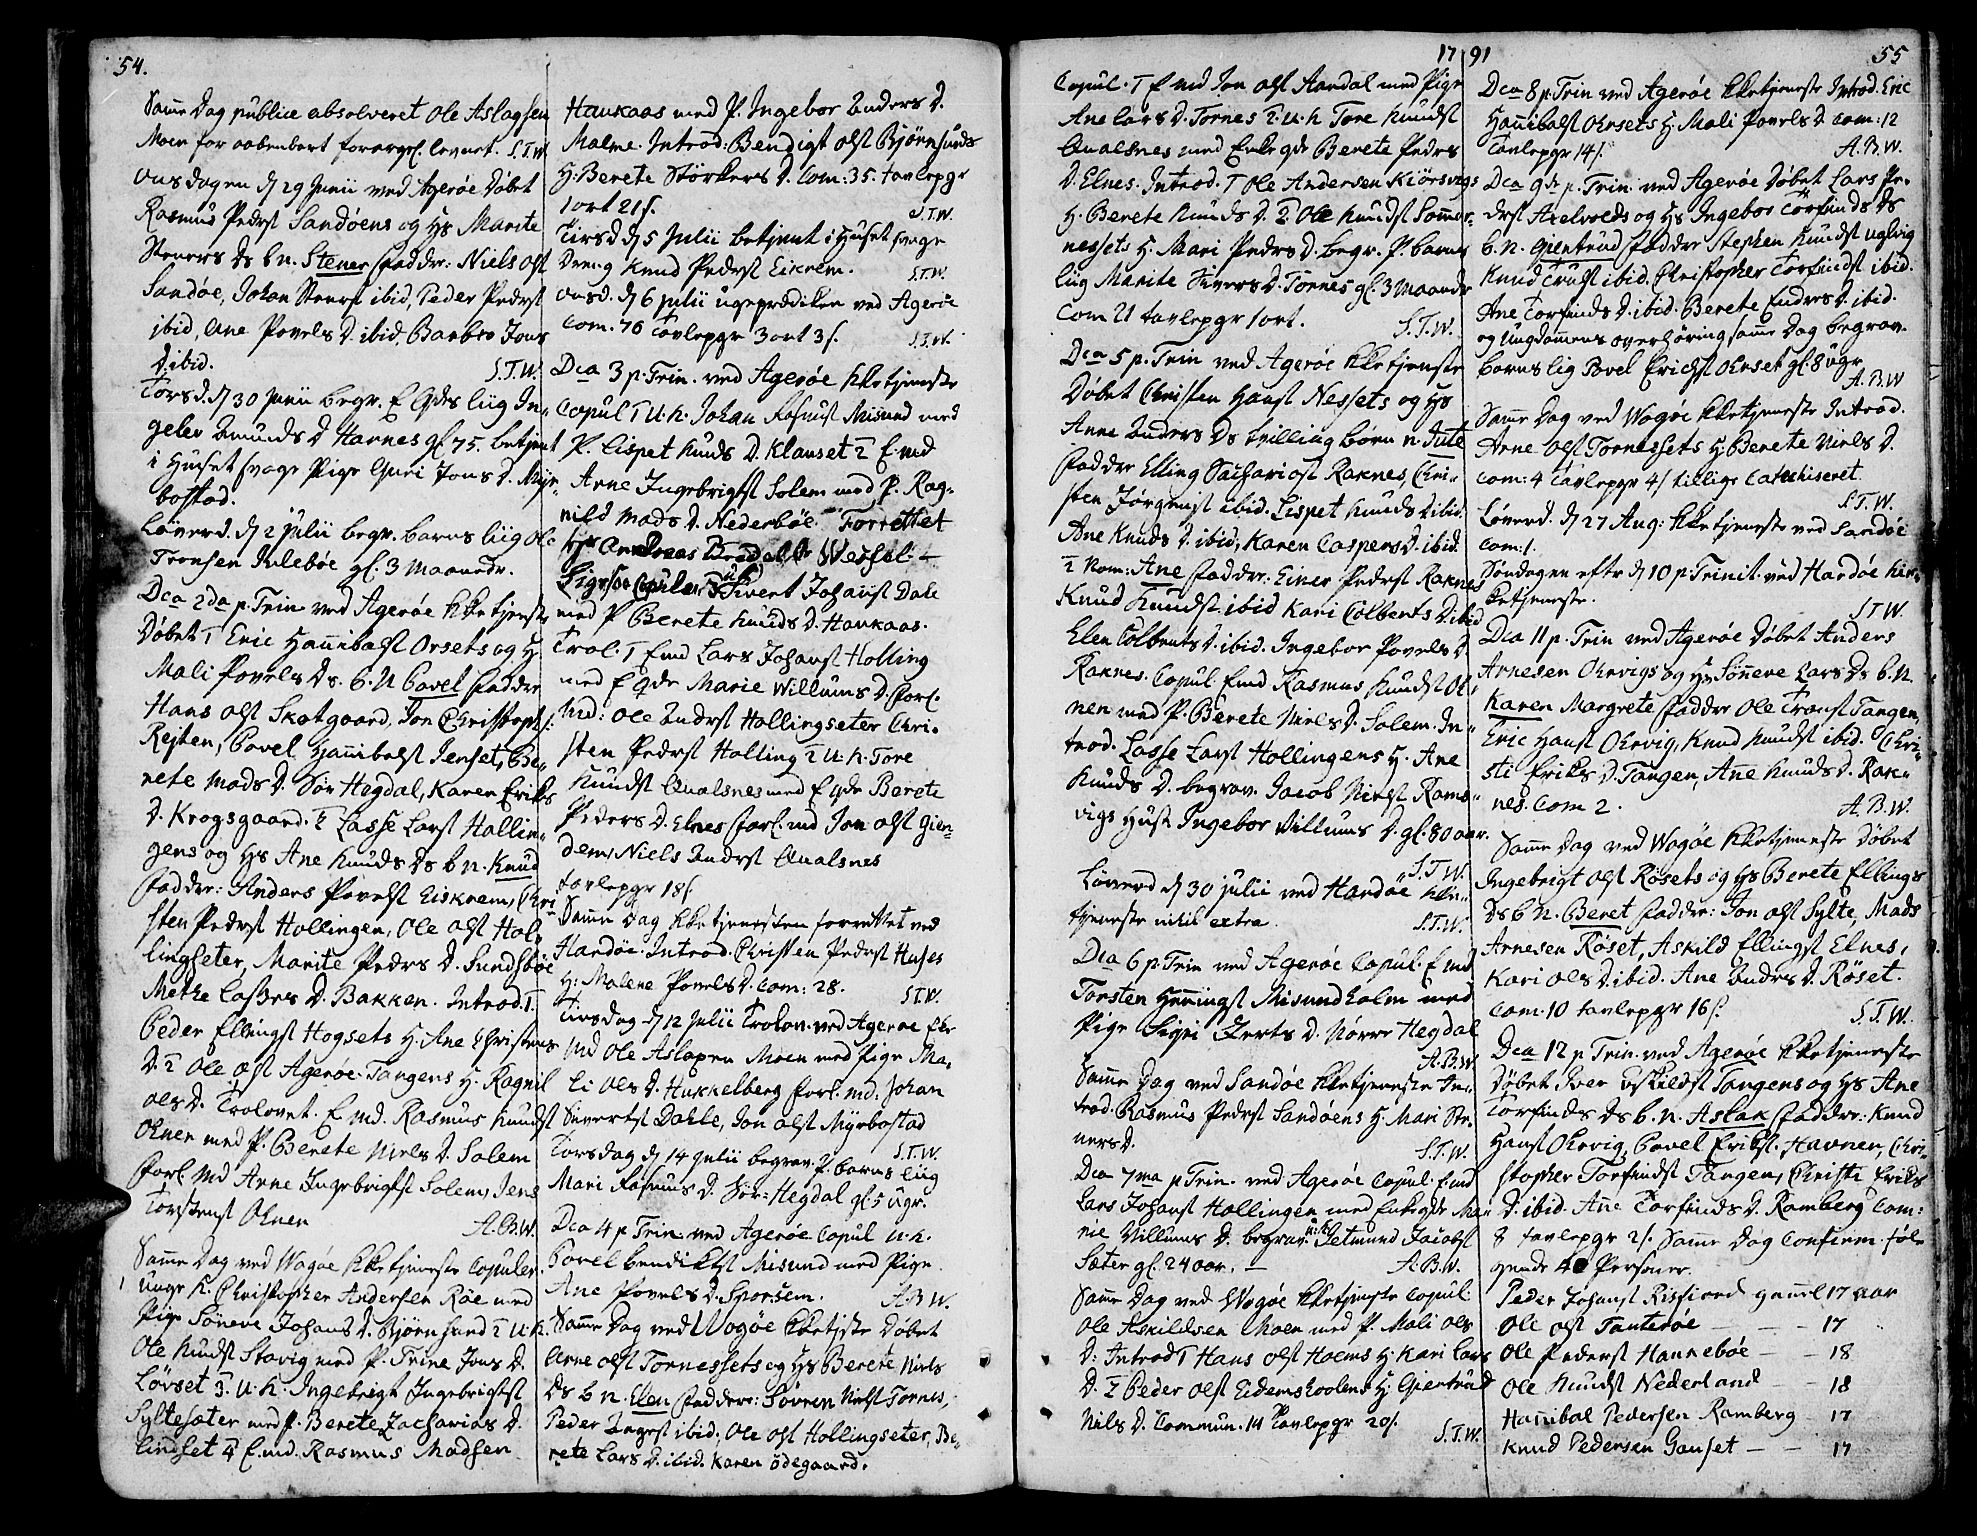 54.
Samme Dag publice absolveret Ole Aslagsen
Moen for aabenbart forargel. levnet. S.T.W.
Onsdagen d 29 Junii ved Agerøe Døbt
Rasmus Pedrs Sandøens og Hs Marite
Steners Ds b. n. Stener Faddre: Niels Ols
Sandøe, Johan Steners ibid, Peder Pedrs
ibid, Ane Povels D. ibid, Barbro Jons
D. ibid. S.T.W.
Torsd. d 30 Junii begr. E Qdes liig In-
geler Amunds D Harnes gl 75. betjent
i Huset svage Pige Guri Jons D. Myr-
bostad.
Løverd. d 2 Julii begr. barns liig Ole
Tronsen Julebøe gl. 3 Maaneder.
Dca 2da p. Trin ved Agerøe Kketjeneste
Døbt 1 Eric Hannibals Orsets og H.
Mali Povels Ds. b. N Povel Faddre
Hans Ols Skotgaard, Jon Christoph:
Rejten, Povel Hannibals Jenset, Be-
rete Mads D. Sør Hegdal, Karen Eriks
D. Krogsgaard. 2 Lasse Lars Hollin-
gens og Hs Ane Knuds Ds b. n. Knud
Faddre: Anders Povels Eiskrem, Chri-
sten Pedrs Hollingen, Ole Ols Hol-
lingseter, Marite Pedrs D. Sundsbøe
Methe Lasses D. Bakken. Introd. 1
Peder Ellings Hogsets H. Ane Christens
D. 2 Ole Ols Agerøe-Tangens H. Ragnil
Ols D. Trolovet. E md. Rasmus Knuds
Ohnen med P. Berete Niels D. Solem
Forl. Md Arne Ingebrigts Solem, Jens
Torstens Ohnen A.B.W.
Samme Dag ved Wagøe Kketjeneste Copuler.
1 Unge K. Christopher Andersen Røe med
Pige Sønneve Johans D. Bjørnsund 2 U. K.
Ole Knuds Stavig med P. Trine Jons D.
Løvset 3. U. K. Ingebrigt Ingebrigts
Syltesæter med P. Berete Zacharias D.
Lindset 4 E. md. Rasmus Madsen
Haukaas med P. Ingebor Anders D.
Malme. Introd: Bendigt Ols Bjørnsunds
H. Berete Størkers D. Com. 35. Tavlepge
1 ort 21 s. S.T.W.
Tirsd d 5 Julii betjent i Huset svage
Dreng Knud Pedrs Eikrem. S.T.W.
Onsd. d 6 Julii ugeprædiken ved Agerøe
Com. 76 Tavlepgr 3 ort 3 s. S.T.W.
Dca 3 p. Trin. ved Agerøe Kketjeneste
Copul 1 U. K. Johan Rasmus Misund med
P. Lispet Knuds D. Klauset 2 E md
Arne Ingebrigts Solem med P. Rag-
nild Mads D. Nederbøe. Forrettet
Hr Andreas Wessel.
Ligesaa Copuler. U. K. Sivert Johans Dale
med P Berete Knuds D. Haukaas.
Trol. 1 E md Lars Johans Holling
med E qde Marie Willums D. Forl.
Md: Ole Anders Hollingseter Chri-
sten Pedrs Holling 2 U. K. Tore
Knuds Qualsnes med E qde Berete
Peders D. Elnes Forl. md Jon Ols Gien-
dem, Niels Anders Qualsnes
Tavlepgr 18 s.
Samme Dag Kketjenesten forrettet ved
Hardøe. Introd. Christen Pedrs Huses
H. Malene Povels D. Com: 28. S.T.W.
Tirsdag d 12 Julii Trolov. ved Agerøe Eke
Md Ole Aslagsen Moen med Pige Ma-
li Ols D. Hukkelberg Forl. md. Johan
Siverts Dahle, Jon Ols Myrbostad
S.T.W.
Torsdag d 14 Julii begrav. P. barns liig
Mari Rasmus D. Sør-Hegdal gl. 5 Uger.
Dca 4 p Trin ved Agerøe Copul U. K.
Povel Bendikts Misund med Pige
Ane Povels D. Sporsem. A.B.W.
Samme Dag ved Wogøe Kketjste Døbt
Arne Ols Tornessets og Hs Berete Niels
Ds b n. Elen Faddere: Søvren Niels Tornes,
Peder Ingers ibid, Ole Ols Hollingseter, Be-
rete Lars D. ibid. Karen Ødegaard.
1791
55
Copul. 1 E md Jon Ols Aandal med Pige
Ane Lars D. Tornes 2. U. K Tore Knuds
Qualsnes med Enke qde Berete Peders
D. Elnes. Introd. 1 Ole Andersen Kiørsvigs
H. Berete Knuds D. 2 Ole Knuds Sommer-
nessets H. Mari Peders D. begr. P. barns
liig Marite Ivers D. Tornes gl. 3 Maaneder
Com 21 Tavlepgr 1 ort. S.T.W.
Dca 5 p. Trin ved Agerøe Kketjeneste
Døbet Christen Hans Nessets og Hs
Anne Anders Ds tvilling børn n. Jute
Faddre Elling Sachariæs Raknes, Chri-
sten Jørgens ibid. Lispet Knuds D ibid.
Ane Knuds D. ibid, Karen Caspers D. ibid.
2 Nom: Ane Faddre: Einer Pedrs Raknes
Knud Knuds ibid Kari Colberts D ibid
Elen Colberts D. ibid. Ingebor Povels D
Raknes. Copul. E md Rasmus Knuds Oh-
nen med P. Berete Niels D. Solem. In-
trod. Lasse Lars Hollingens H. Ane
Knuds D. begrav. Jacob Niels Rams-
vigs Hust Ingebor Villums D. gl. 80 aar.
S.T.W.
Løverd d 30 Julii ved Hardøe Kke-
tjeneste nihil extra. S.T.W.
Dca 6 p. Trin ved Agerøe Copul. E md
Torsten Hennings Misundholm med
Pige Sigri Iverts D. Nørre Hegdal
A.B.W.
Samme Dag ved Sandøe Kketjeneste In-
trod. Rasmus Pedrs Sandøens H. Mari Ste-
ners D. S.T.W.
Dca 7ma p Trin. ved Agerøe Copul. E md
Lars Johans Hollingen med Enkeqde Ma-
rie Villums D. begrav. U. K. Setmund Jacobs
Sæter gl. 24 aar. — A.B.W.
Samme Dag ved Wogøe Kketjeste Copul
Ole Askildsen Moen med P. Mali Ols
D: Introd 1 Hans Ols Hoems H. Kari Lars
D. 2 Peder Ols Eidemshoolens H. Giertrud
Niels D. Commun. 14 Tavlepgr 20 s.
S.T.W.
Dca 8 p. Trin ved Agerøe Kketjeneste Introd. Eric
Hannibals Ohrsets H. Mali Povels D. Com: 12
Tavlepgr 14 s. A.B.W.
Dca 9de p. Trin. ved Agerøe Døbet Lars Pe-
drs Axelvolds og Hs Ingebor Torfinds Ds
b. n. Giertrud Faddre Stephen Knuds Uglvig
Knud Truls ibid. Christopher Torfinds ibid.
Ane Torfinds D. ibid. Berete Enders D. ibid.
og Ungdommens overhøring samme Dag begrav.
barns lig Povel Erichs Ohrset gl. 8 Uger
A.B.W
Samme Dag ved Wogøe Kketjeneste Introd.
Arne Ols Tornessets H. Berete Niels D.
Com: 4 Tavlepgr 4 s tillige Catechiseret.
S.T.W.
Løverd. d 27 Aug: Kketjeneste ved Sandøe
Com: 1.
Søndagen efter d 10 p Trinit. ved Hardøe Kir-
ketjeneste. S.T.W.
Dca 11 p. Trin ved Agerøe Døbet Anders
Arnesen Ohrvigs og Hs Sønneve Lars Ds b. N.
Karen Margrete Faddre Ole Trons Tangen,
Eric Hans Ohrvig, Knud Knuds ibid. Chri-
sti Eriks D. Tangen, Ane Knuds D. Rak-
nes. Com 2. A.B.W.
Samme Dag ved Wogøe Kketjeneste Døbet
Ingebrigt Ols Røsets og Hs Berete Ellings
Ds b N. Beret Faddre: Jon Ols Sylte, Mads
Arnesen Røset, Askild Ellings Elnes,
Kari Ols D. ibid. Ane Anders D. Røset.
Com. 10 Tavlepgr 16 s. S.T.W.
Dca 12 p Trin. ved Agerøe Kketjeneste
Døbet Iver Eskilds Tangens og Hs Ane
Torfinds Ds b. n. Aslak Faddre: Knud
Hans Ohrvig, Povel Eriks. Havnen, Chri-
stopher Torfinds Tangen, Christi Eriks
D. ibid. Ane Torfinds D. Ramberg Com:
8 Tavlepgr 2 s. Samme Dag Confirm. føl-
gende 40 Personer.
Peder Johans Risfiord gamel 17 aar
Ole Ols Tanterøe — — — 17
Ole Peders Hannebøe — — 18
Ole Knuds Nederland — 18
Hannibal Pedersen Ramberg 17
Knud Pedersen Gauset — — 17